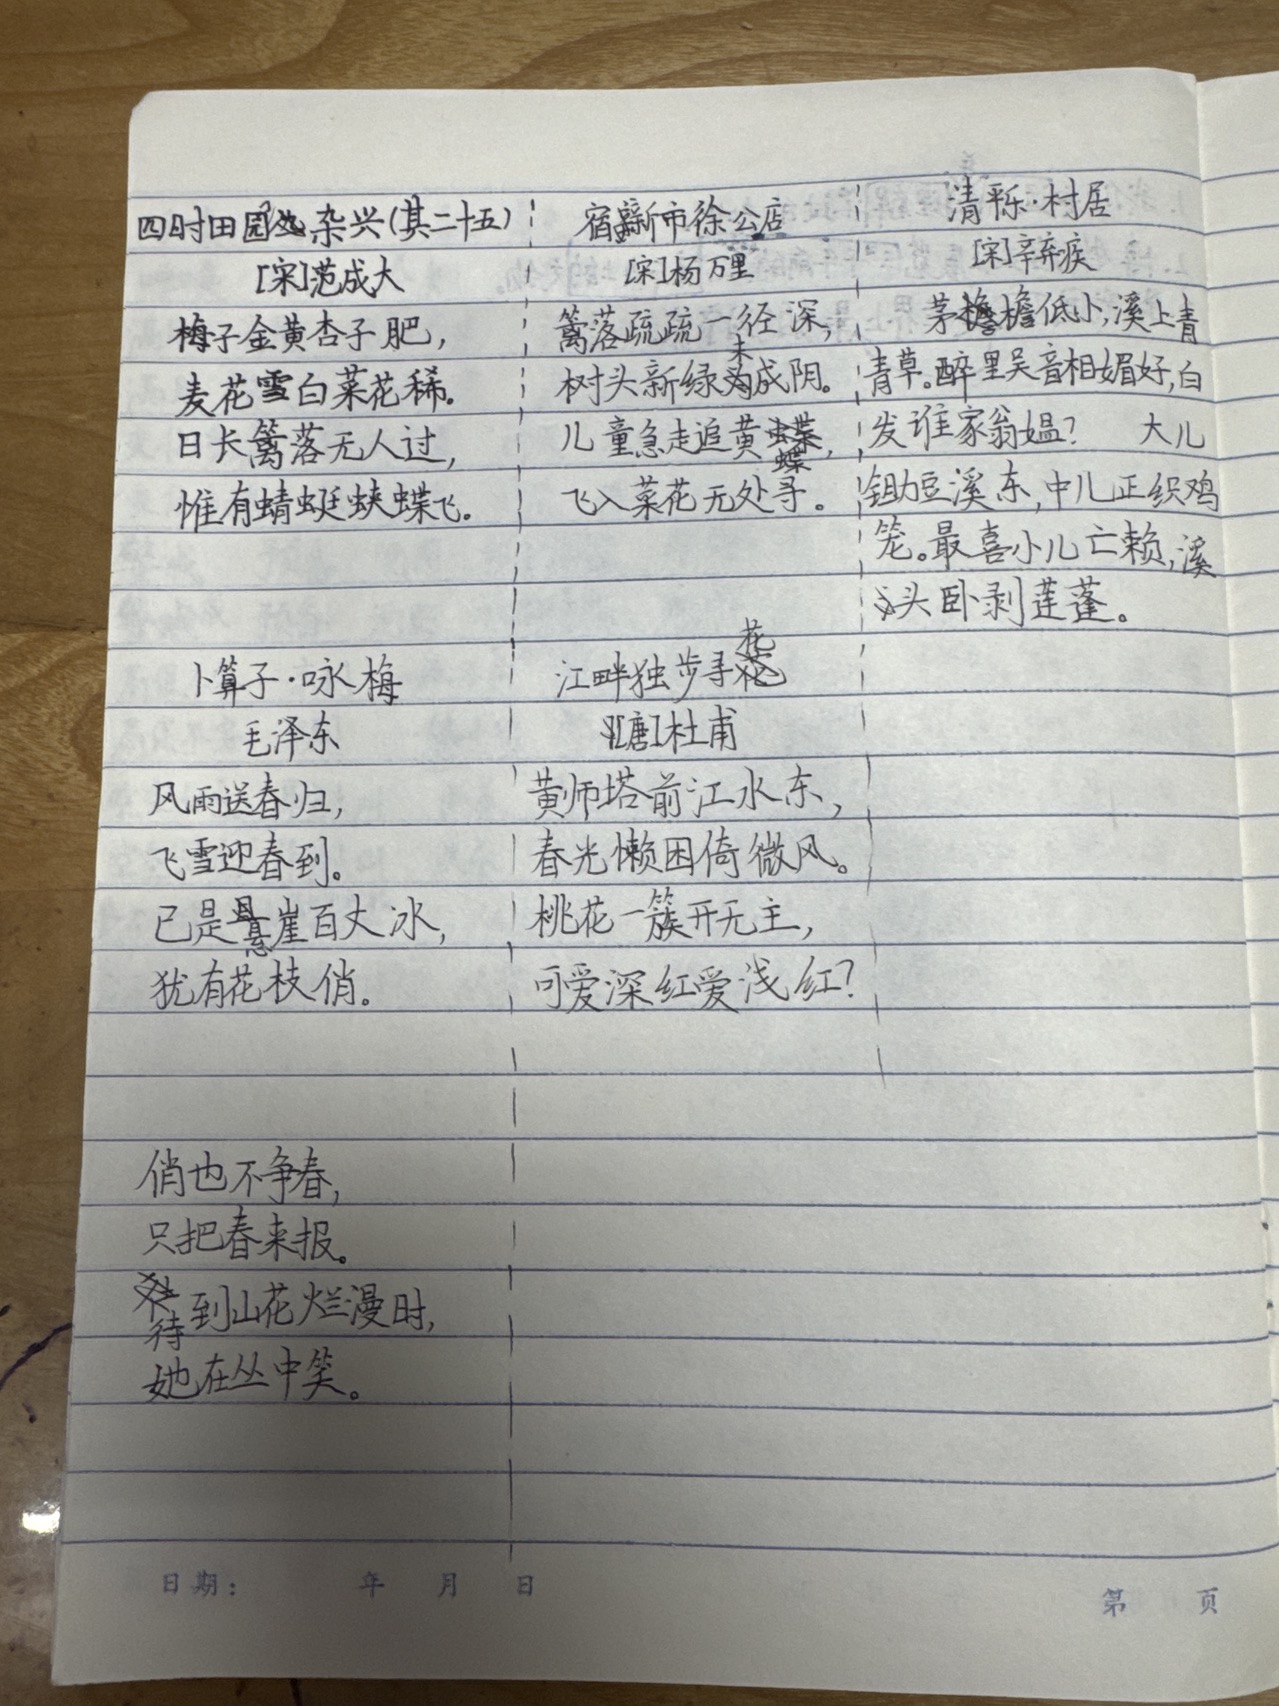 四时田园杂兴(其二十五)
[宋]范成大
梅子金黄杏子肥,
麦花雪白菜花稀。
日长篱落无人过,
惟有蜻蜓蛱蝶飞。
宿新市徐公店
[宋]杨万里
篱落疏疏一径深,
树头新绿未成阴。
儿童急走追黄蝶,
飞入菜花无处寻。
清平乐·村居
[宋]辛弃疾
茅檐低小,溪上青
青草。醉里吴音相媚好,白
发谁家翁媪? 大儿
锄豆溪东,中儿正织鸡
笼。最喜小儿亡赖,溪
头卧剥莲蓬。
卜算子·咏梅
毛泽东
风雨送春归,
飞雪迎春到。
已是悬崖百丈冰,
犹有花枝俏。
俏也不争春,
只把春来报。
待到山花烂漫时,
她在丛中笑。
江畔独步寻花
[唐]杜甫
黄师塔前江水东,
春光懒困倚微风。
桃花一簇开无主,
可爱深红爱浅红?
日期: 年 月 日
第 页